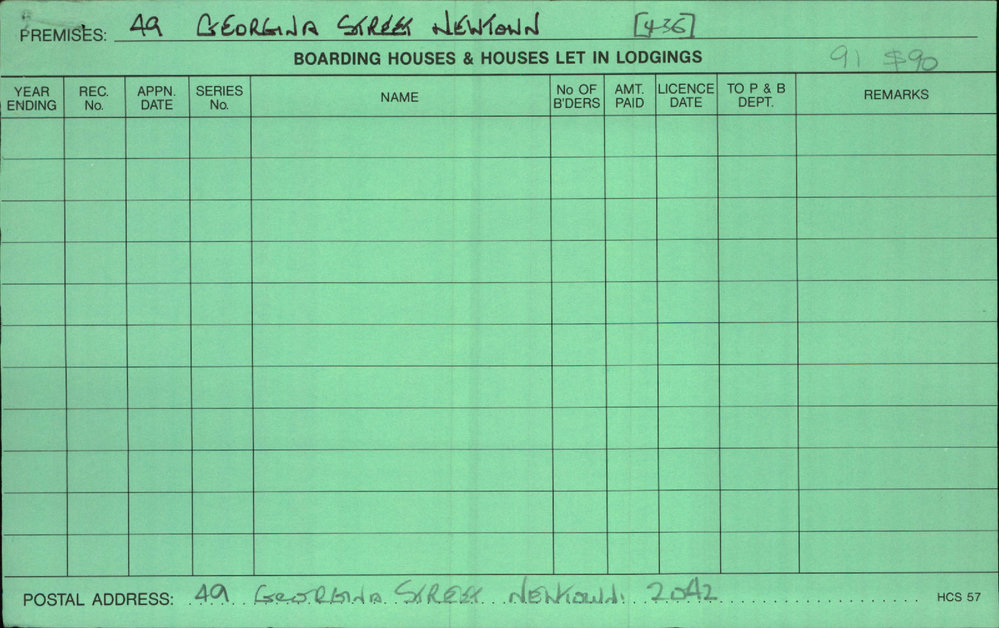 PREMISES: 49 GEORGINA STREET NEWTOWN [436]
BOARDING HOUSES & HOUSES LET IN LODGINGS 91 $90
YEAR ENDING REC. No. APPN. DATE SERIES No. NAME No OF B'DERS AMT. PAID LICENCE DATE TO P & B DEPT. REMARKS
POSTAL ADDRESS: 49 GEORGINA STREET NEWTOWN. 2042 HCS 57